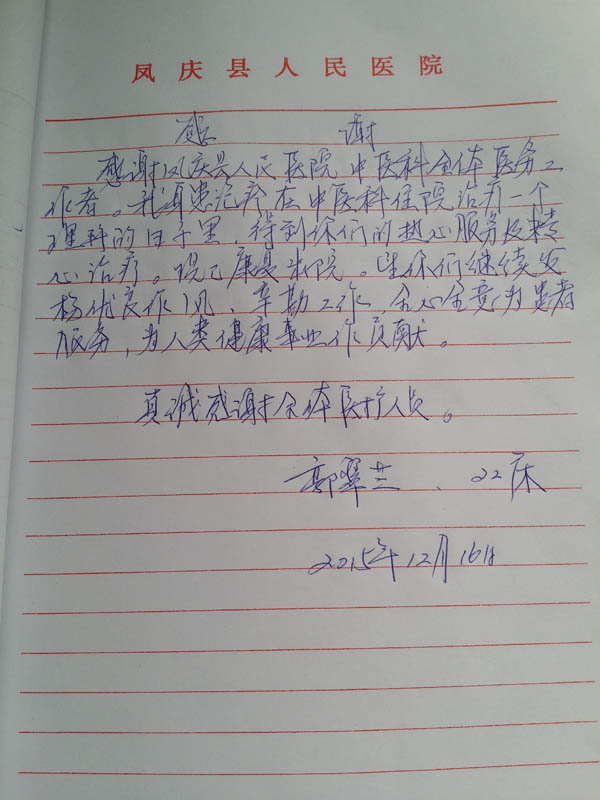 凤庆县人民医院
感 谢
感谢凤庆县人民医院中医科全体医务工
作者。我因患疱疹在中医科住院治疗一个
星期的日子里，得到你们的热心服务及精
心治疗。现已康复出院。望你们继续发
扬优良作风、辛勤工作、全心全意为患者
服务，为人类健康事业作贡献。
真诚感谢全体医疗人员。
郭翠兰、22床
2015年12月16日